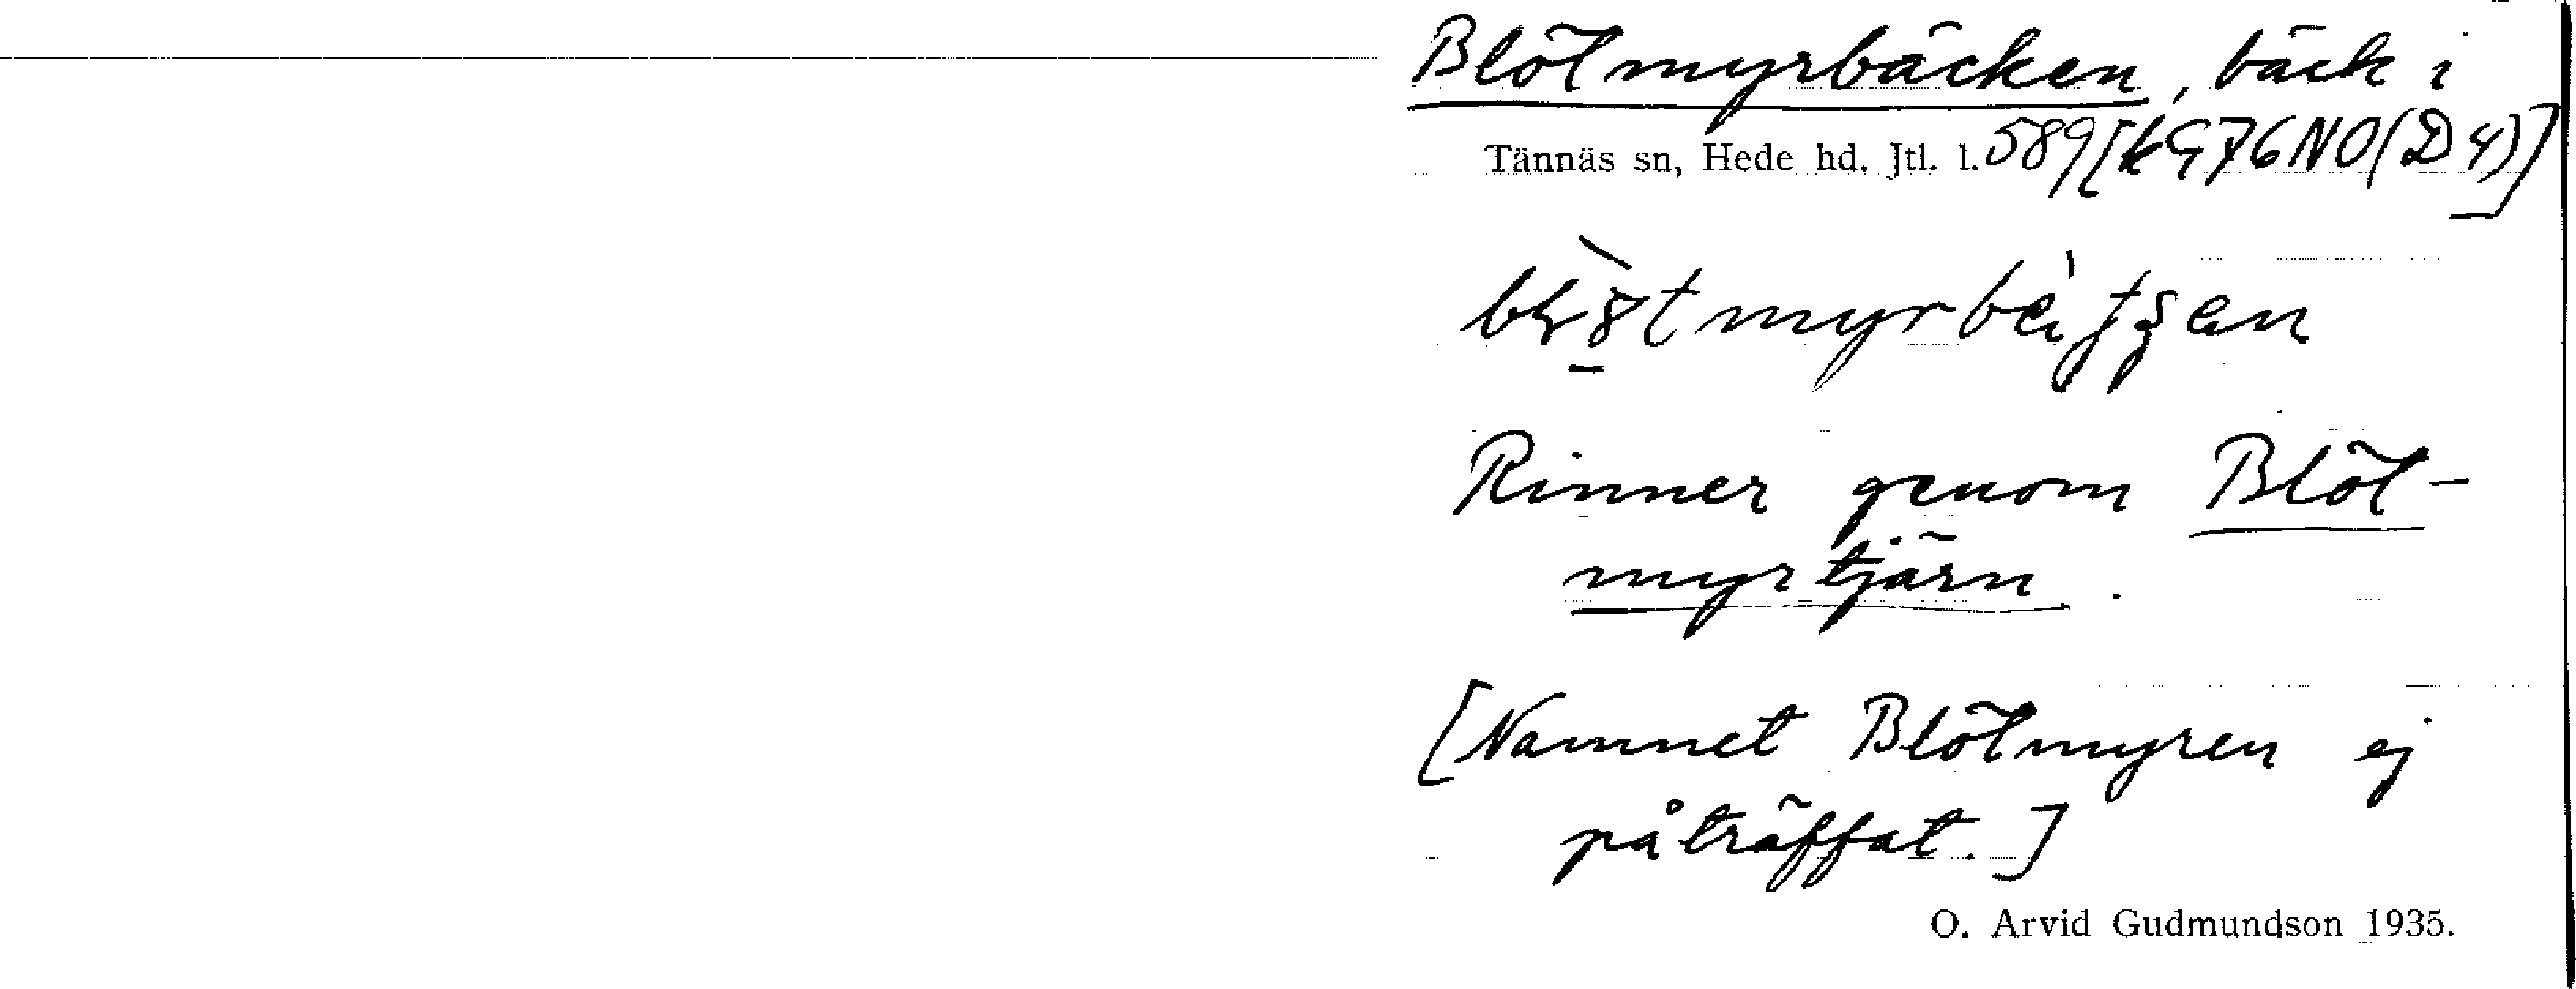 Blötmyrbäcken, bäck i
Tännäs sn, Hede hd. Jtl. l. 589 [kG76NO(D4)]
Rinner genom Blöt-
myrtjärn.
[Namnet Blötmyren ej
påträffat.]
O. Arvid Gudmundson 1935.